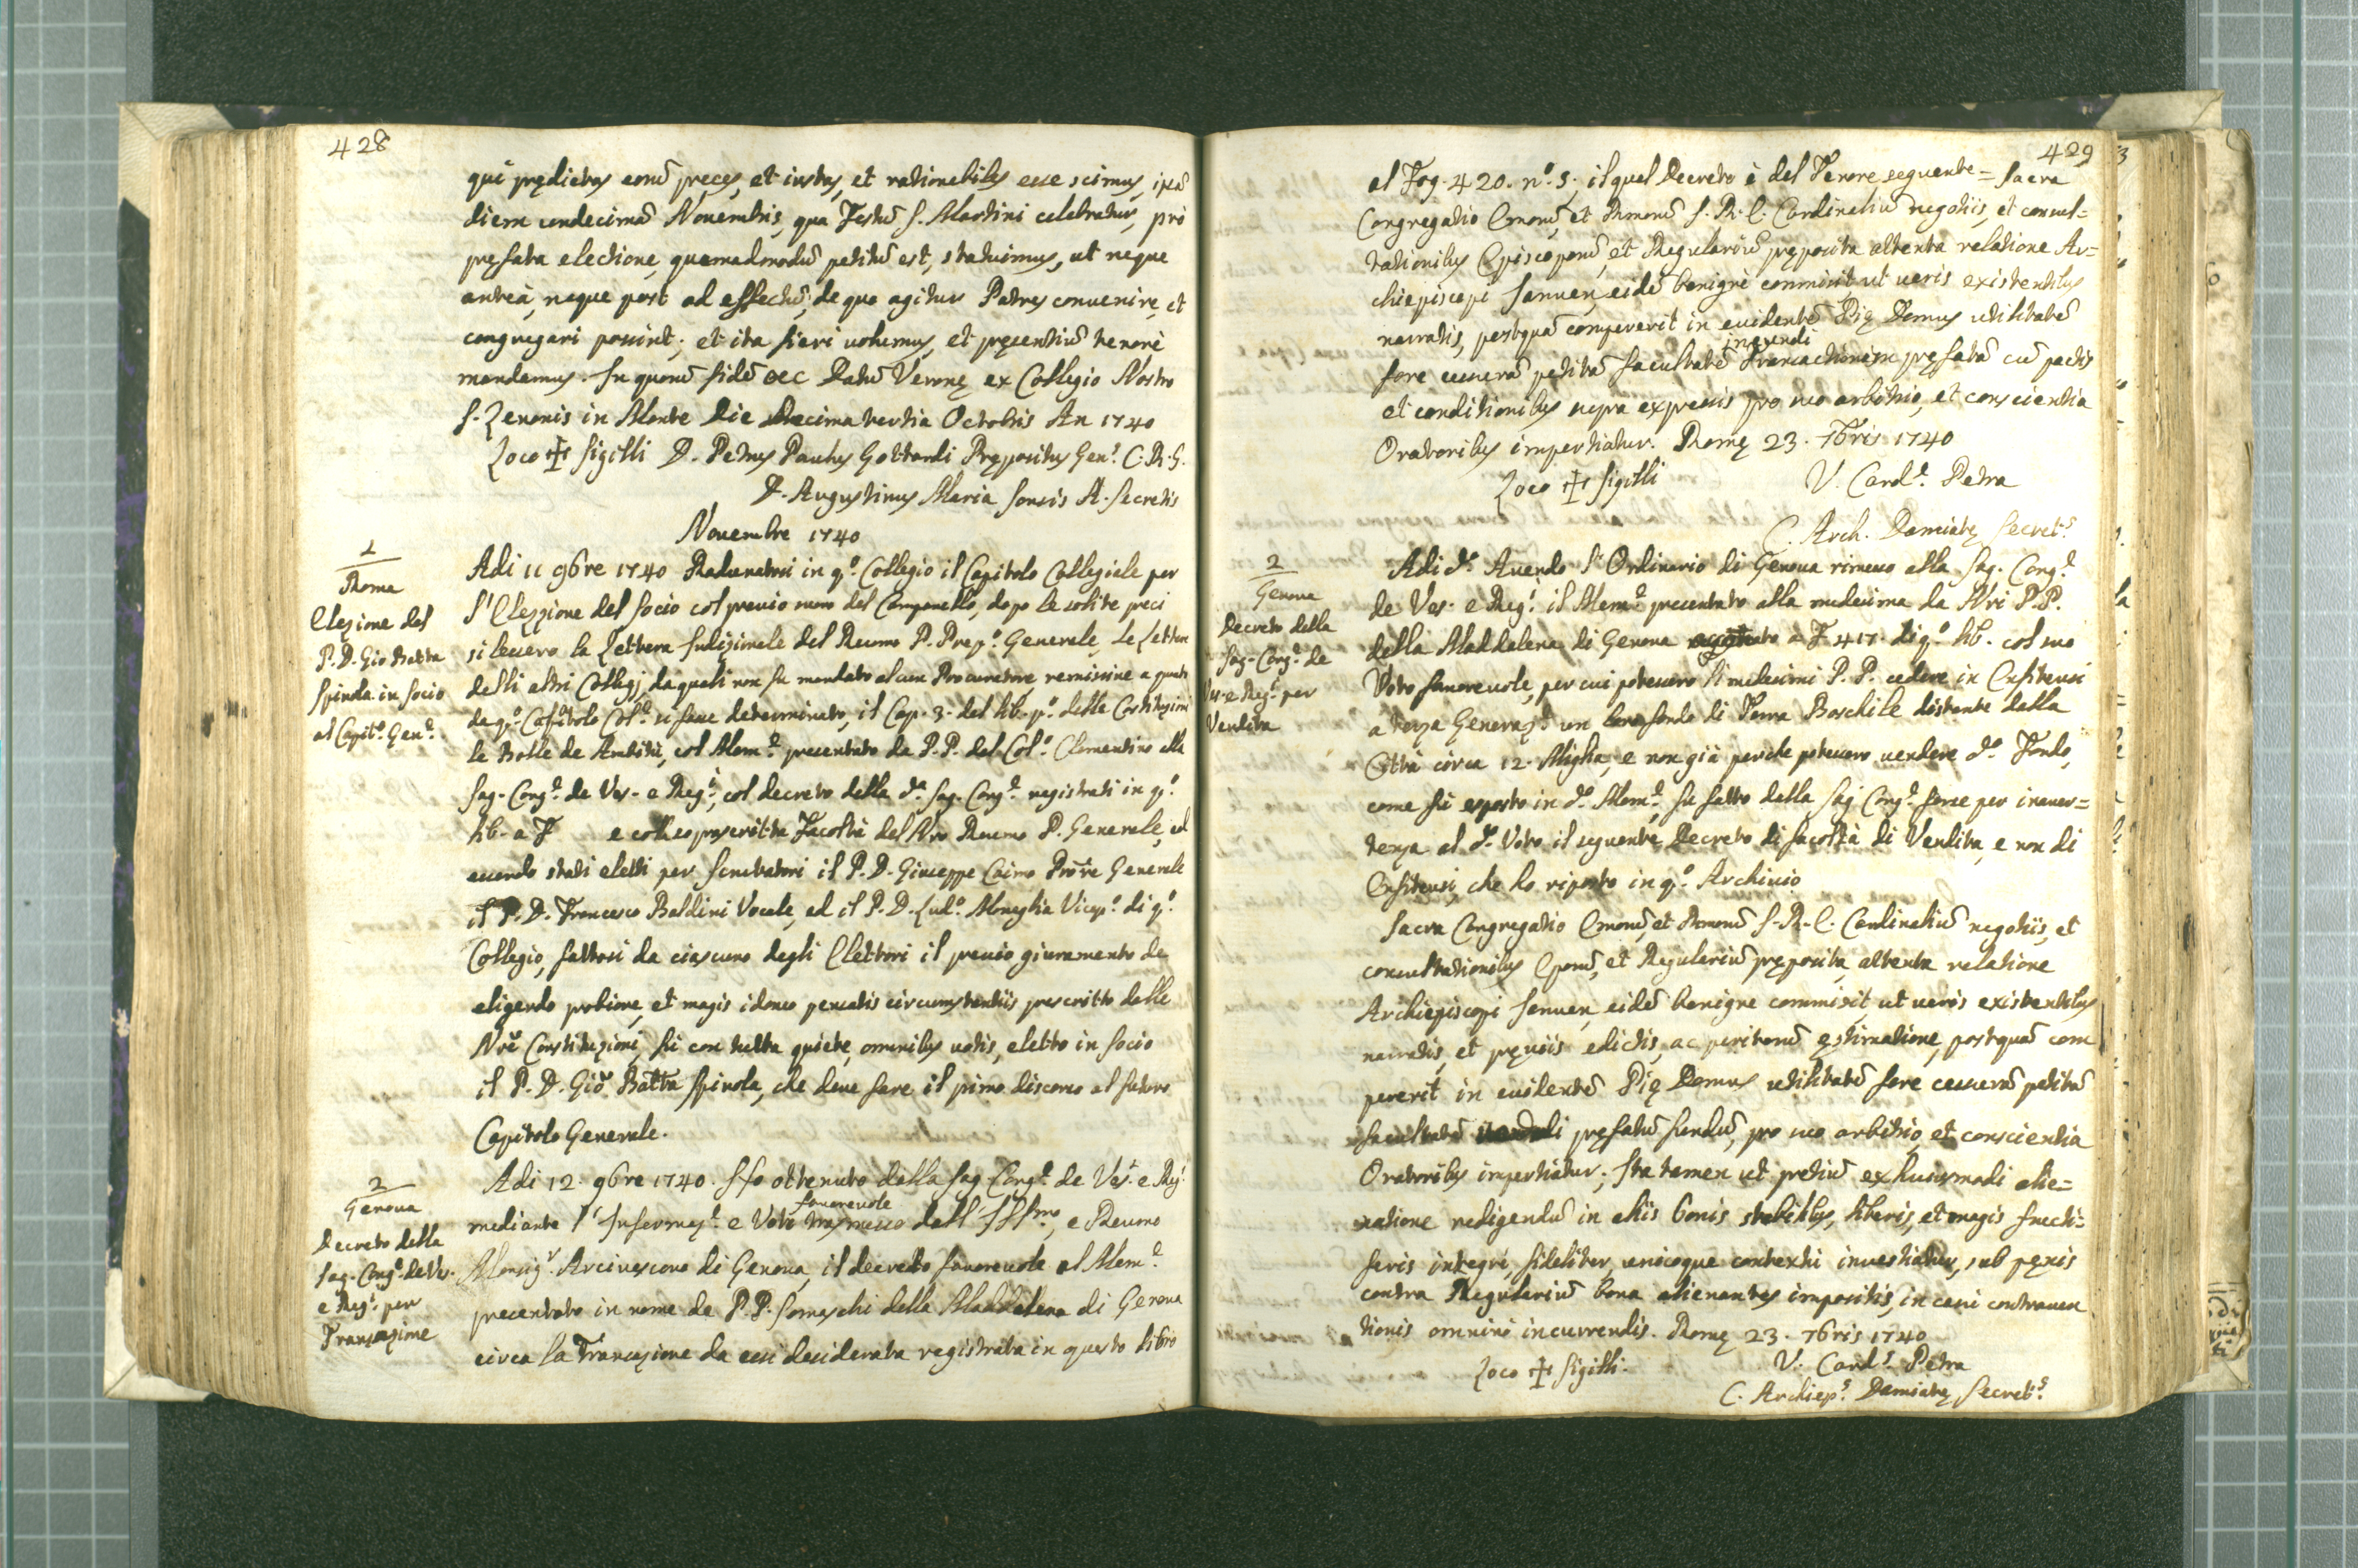 428
qui prędictas eorū preces, et iustas, et rationabiles esse scimus, ipsā
diem undecimā Novembris, qua Festū S. Martini celebratur, pro
pręfata electione, quemadmodū petitū est, statuimus, ut neque
anteà, neque post ad effectū, de quo agitur Patres convenire, et
congregari possint; et ita fieri volumus, et pręsentiū tenore
mandamus. In quorū fidē &c Datū Veronę ex Collegio Nostro
S. Zenonis in Monte Die Decima tertia Octobris An 1740
Loco ✠ Sigilli D. Petrus Paulus Gottardi Prępositus Gen.l C.R.S.
D. Augustinus Maria Sonsis A. Secretis
Novembre 1740
1
Roma
Elezione del
P. D. Gio Batta
Spinola in Socio
al Capit.o Gen.e
Adi 11 9bre 1740 Radunatosi in q.o Collegio il Capitolo Collegiale per
l'Elezzione del Socio col previo suono del Campanello, dopo le solite preci
si lessero la Lettera Indizionale del Reumo P. Prep.o Generale, le Lettere
delli altri Collegj, da quali non fu mandato alcun Procuratore remissive a quanto
da q.o Capitolo Col.e si fosse determinato, il Cap. 3. del lib. p.o delle Costituzioni
le Bolle de Ambitu, col Mem.e presentato da P.P. del Col.o Clementino alla
Sag. Cong.e de Ves. e Reg.i, col decreto della d.a Sag. Cong.e registrati in q.o
lib. a F e colla soprascritta Facoltà del Nro Reumo P. Generale, ed
essendo stati eletti per Scrutatori il P. D. Giuseppe Caimo Prōre Generale
il P. D. Francesco Baldini Vocale, ed il P. D. Lud.o Moneglia Vicep.o di q.o
Collegio, fattosi da ciascuno degli Elettori il previo giuramento de
eligendo probiore, et magis idoneo pensatis circumstantiis prescritto dalle
Nrē Constituzioni, fù con tutta quiete, omnibus votis, eletto in Socio
il P. D. Giō Batta Spinola, che deve fare il primo discorso al futuro
Capitolo Generale.
2
Genova
Decreto della
Sag. Cong.e de Ves.
e Reg.i per
Transazione
Adi 12. 9bre 1740. Si è ottenuto dalla Sag. Cong.e de Ves.i e Reg.i
mediante l'Informaz.e e Voto favorevole trasmesso dall'Ill.mo, e Reumo
Monsig.r Arcivescovo di Genova, il decreto favorevole al Mem.e
presentato in nome de P.P. Somaschi della Maddalena di Genova
circa la Transazione da essi desiderata registrata in questo libro
429
al Fog. 420. n.o 5. il qual Decreto è del Tenore seguente = Sacra
Congregatio Emorū, et Rmorū S. R. E. Cardinaliū negotiis, et consul=
tationibus Episcoporū, et Regulariū pręposita attenta relatione Ar=
chiepiscopi Januen, eidē benignè commisit ut veris existentibus
narratis, postquā compererit in evidentē Pię Domus utilitatē
fore cessurā petitā facultatē ineundi Transactionem pręfatā cū pactis
et conditionibus supra expressis pro suo arbitrio, et conscientia
Oratoribus impertiatur. Romę 23. 7bris 1740
Loco ✠ Sigilli V. Card.e Petra
C. Arch. Damiatę Secret.s
2
Genova
Decreto della
Sag. Cong.e de
Ves. e Reg.i per
Vendita
Adi d.o Avendo l'Ordinario di Genova rimesso alla Sag. Cong.e
de Ves. e Reg.i il Mem.e presentato alla medesima da Nri P.P.
della Maddalena di Genova a F 417. di q.o lib. col suo
Voto favorevole, per cui potessero li medesimi P.P. cedere in Enfiteusi
a terza Generaz.e un fondo di Terra Boschile distante dalla
Città circa 12. Miglia, e non già perche potessero vendere d.o Fondo,
come fù esposto in d.o Mem.e, fu fatto dalla Sag. Cong.e forse per inaver=
tenza al d.o Voto il seguente Decreto di facoltà di Vendita, e non di
Enfiteusi, che ho riposto in q.o Archivio
Sacra Congregatio Emorū, et Rmorū S. R. E. Cardinaliū negotiis, et
consultationibus Eporū, et Regulariū pręposita, attenta relatione
Archiepiscopi Januen, eidē benigne commisit, ut veris existentibus
narratis, et pręviis edictis, ac peritorū ęstimatione, postquā com
pererit in evidentē Pię Domus utilitatē fore cessurā petitā
facultatē vendendi pręfatū fundū, pro suo arbitrio et conscientia
Oratoribus impertiatur; Ita tamen ut pretiū ex huiusmodi alie=
natione redigendū in aliis bonis stabilibus, liberis, et magis fructi=
feris integrè, fideliter, unicoque contextu investiatur, sub pęnis
contra Regulariū bona alienantes impositis, in casu contraven
tionis omninò incurrendis. Romę 23. 7bris 1740
Loco ✠ Sigilli. V. Card.s Petra
C. Archiep.s Damiatę Secret.s